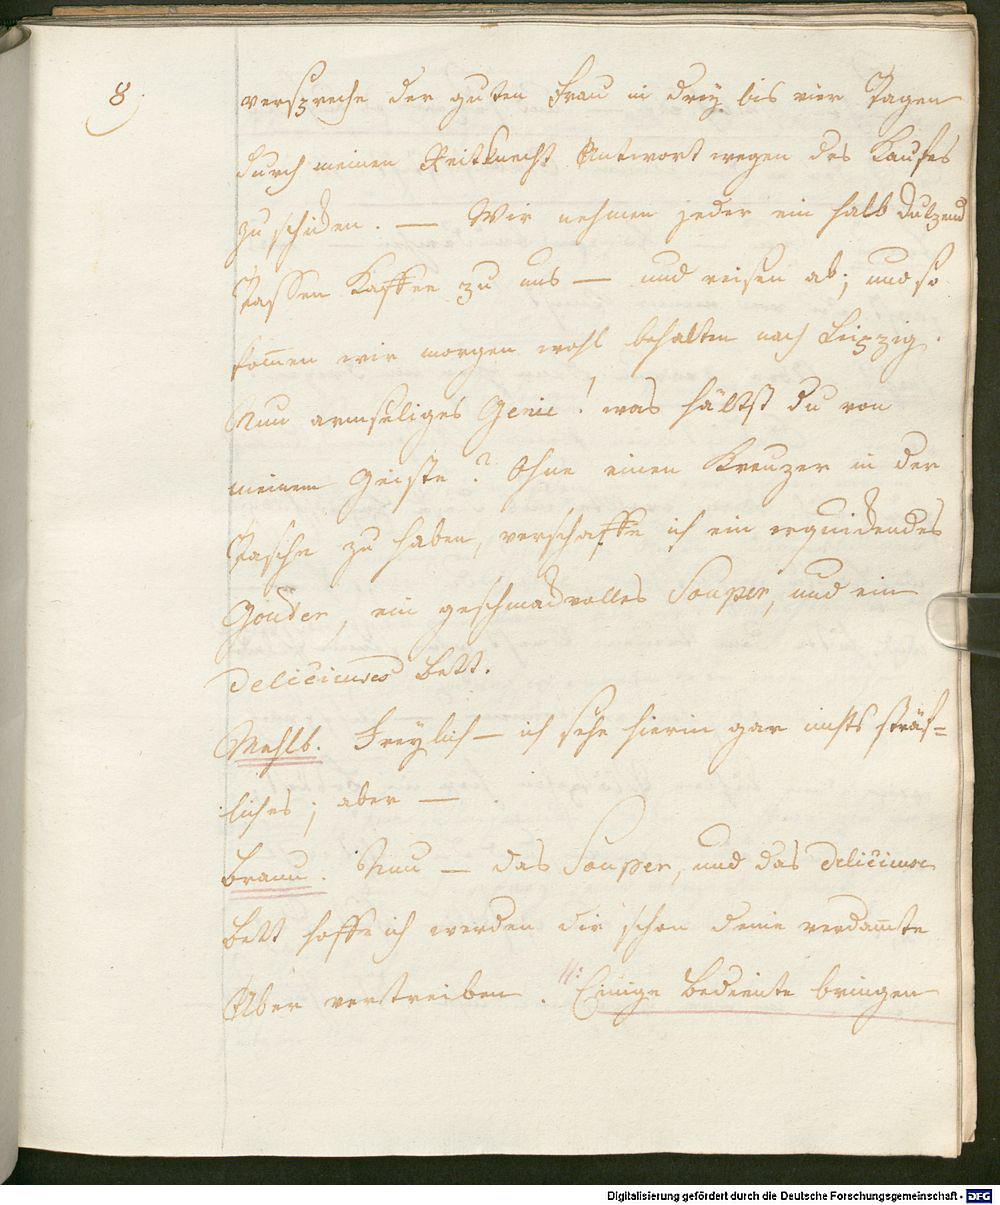 8.
verspreche der guten Frau in drey bis vier Tagen
durch meinen Reitknecht Antwort wegen des Kaufes
zu schicken. — Wir nehmen jeder ein halb Dutzend
Tassen Kaffee zu uns — und reisen ab; und so
kom̄en wir morgen wohl behalten nach Leipzig.
Nun armseliges Genie! was hältst du von
meinem Geiste? Ohne einen Kreuzer in der
Tasche zu haben, verschaffe ich ein erquickendes
Gouder, ein geschmackvolles Souper, und ein
delicieuses Bett.
Mehlb. Freylich — ich sehe hierin gar nichts sträf=
liches; aber —
Braun. Nun — das Souper, und das deliciuse
Bett hoffe ich werden dir schon deine verdam̄te
Aber vertreiben. //: Einige Bediente bringen
Digitalisierung gefördert durch die Deutsche Forschungsgemeinschaft - DFG